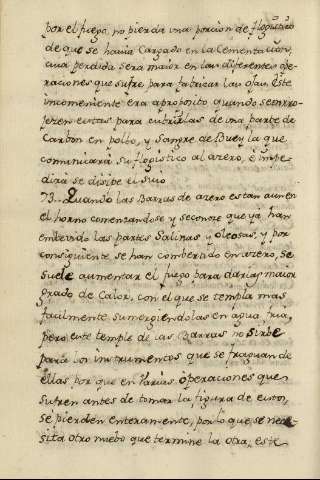 por el fuego, no pierda una porcion de flogistico
de que se havia Cargado en la Cementacion,
cuia perdida sera maior en las diferentes ope-
raciones que sufre para fabricar las ojas. Este
incomeniente era aproposito quando se enrro-
jezen estas para cubrirlas de una parte de
Carbon en polbo, y Sangre de Buey la que
comunicará su flogistico al azero, é impe-
dira se disipe el suio
73. Quando las Barras de azero estan aun en
el horno comenzandose y se conoze que ya han
embevido las partes Salinas y oleosas, y por
consiguiente se han combertido en azero, se
suele aumentar el fuego para darlas maior
grado de Calor, con el que se templa mas
facilmente sumergiendolas en agua fria,
pero este temple de las Barras no sirbe
para los instrumentos que se fraguan de
ellas por que en varias operaciones que
sufren antes de tomar la figura de estos,
se pierden enteramente, por lo que se nece-
sita otro nuebo que termine la otra, este